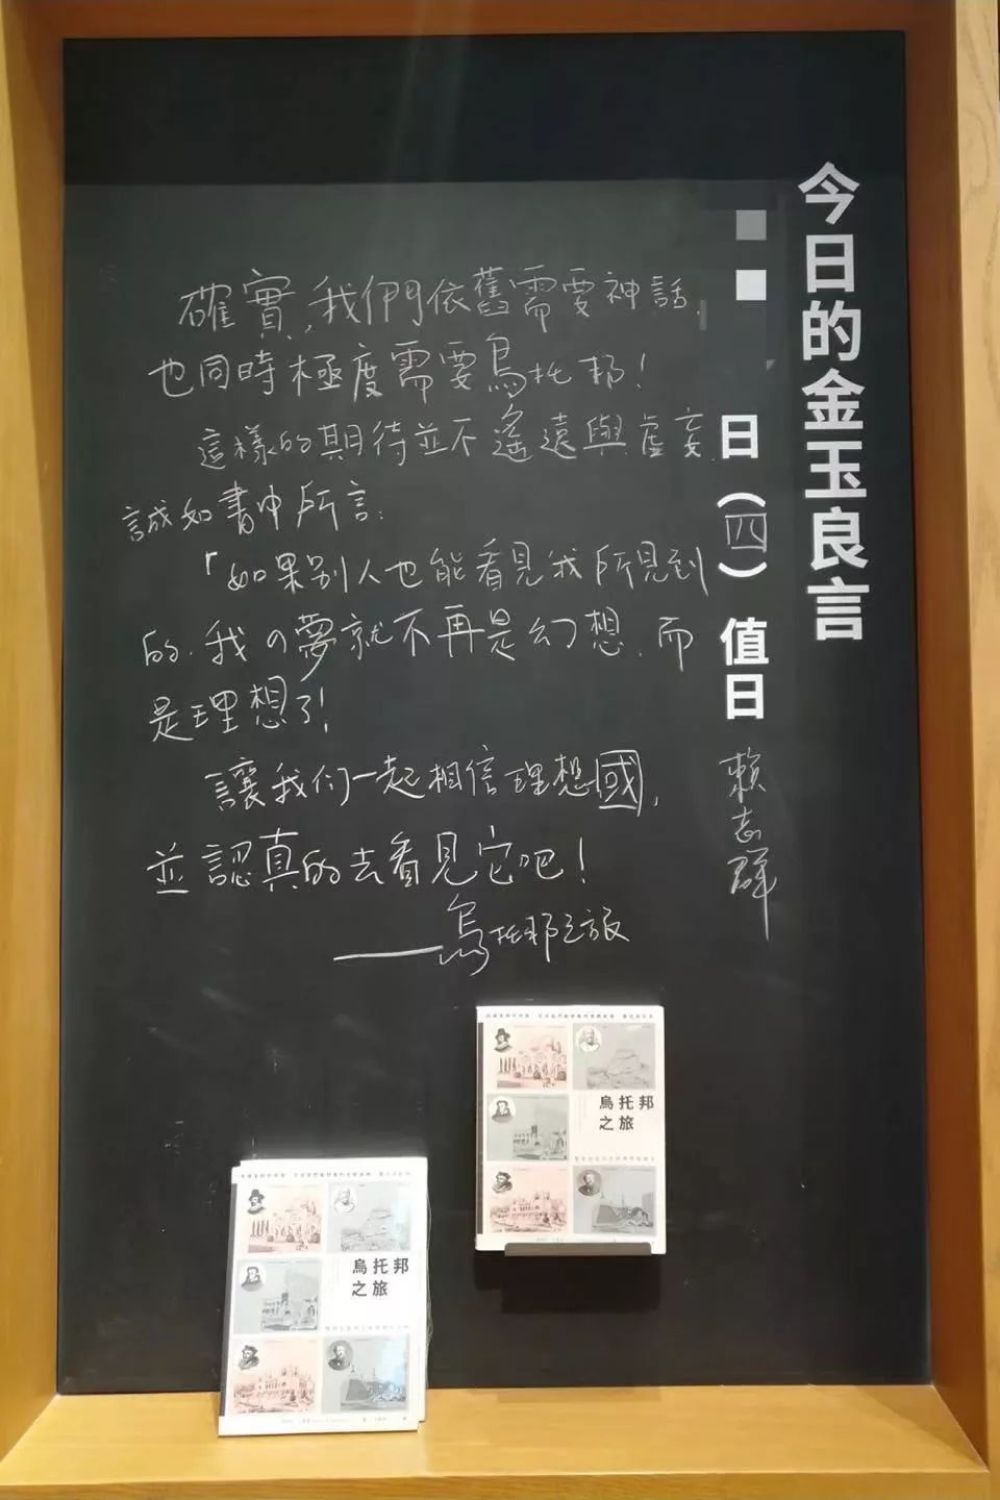 今日的金玉良言
日（四）值日 賴志群
確實，我們依舊需要神話，
也同時極度需要烏托邦！
這樣的期待並不遙遠與虛妄，
誠如書中所言：
「如果別人也能看見我所見到
的，我的夢就不再是幻想，而
是理想了！
讓我们一起相信理想國，
並認真的去看見它吧！
——烏托邦之旅
烏托邦
之旅
烏托邦
之旅